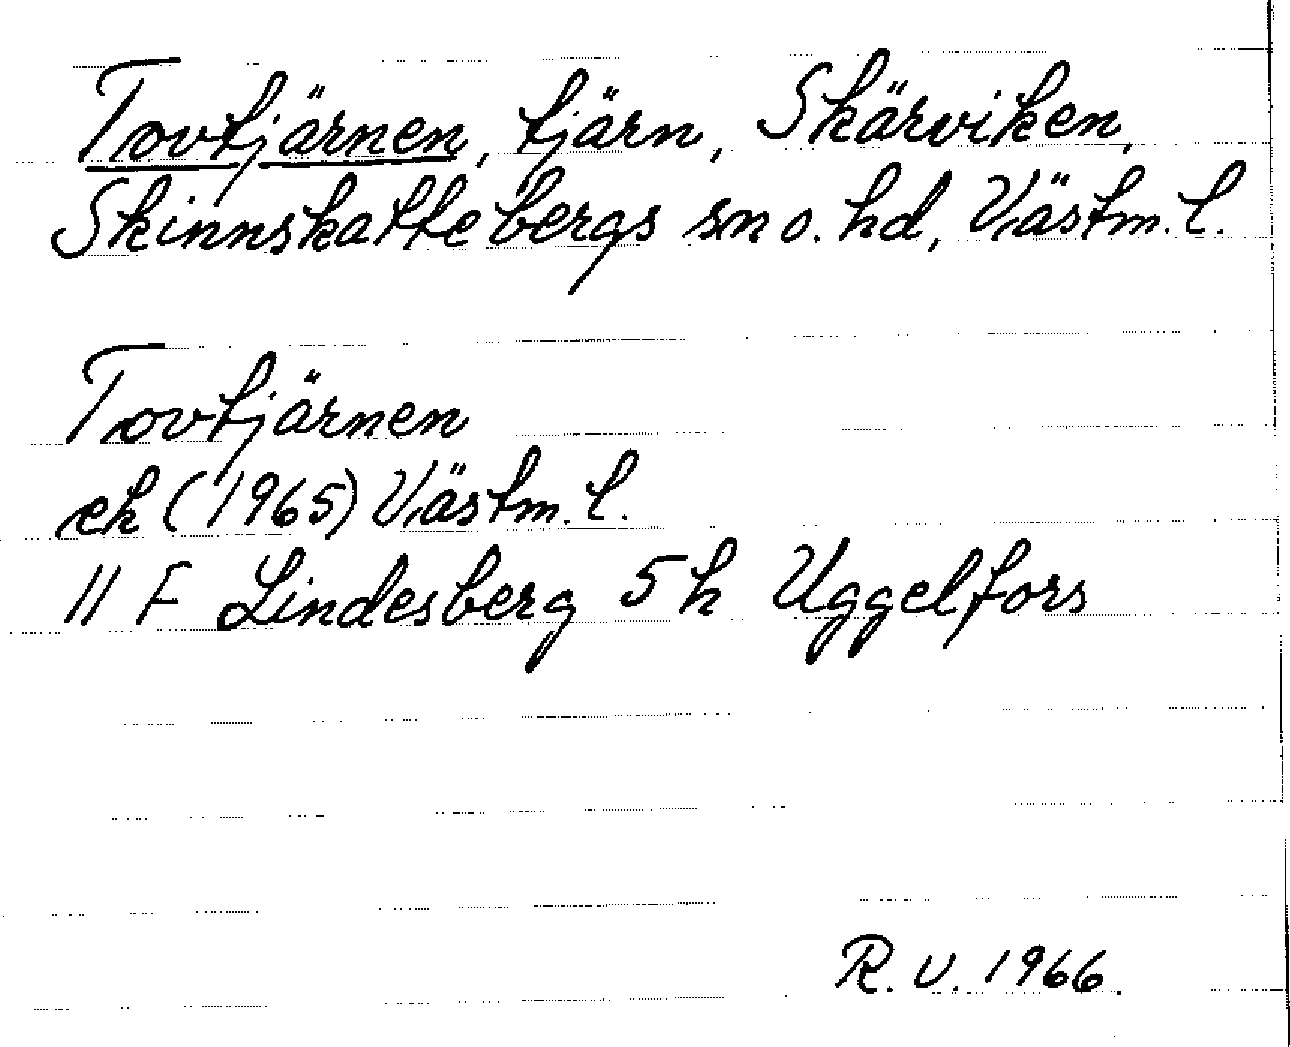 Tovtjärnen, tjärn, Skärviken,
Skinnskattebergs sn o. hd, Västm. l.
Tovtjärnen
ek (1965) Västm. l.
11 F Lindesberg 5 h Uggelfors
R. V. 1966.